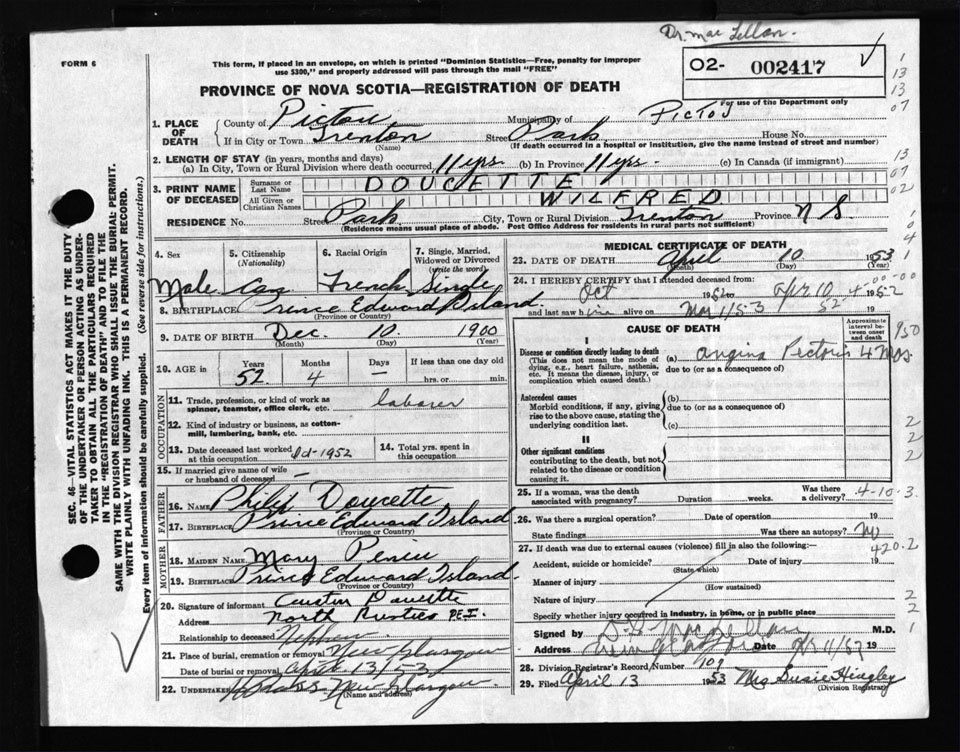 Dr. Mac Lellan.
FORM 6
This form, if placed in an envelope, on which is printed "Dominion Statistics—Free, penalty for improper
use $300," and properly addressed will pass through the mail "FREE"
02- 002417
PROVINCE OF NOVA SCOTIA—REGISTRATION OF DEATH
For use of the Department only
1. PLACE OF DEATH
County of Pictou Municipality of Pictou
If in City or Town Trenton Street Park House No.
(Name) (If death occurred in a hospital or institution, give the name instead of street and number)
2. LENGTH OF STAY (in years, months and days)
(a) In City, Town or Rural Division where death occurred 11 yrs. (b) In Province 11 yrs. (c) In Canada (if immigrant)
3. PRINT NAME OF DECEASED
Surname or Last Name DOUCETTE
All Given or Christian Names WILFRED
RESIDENCE No. Street Park City, Town or Rural Division Trenton Province N S.
(Residence means usual place of abode. Post Office Address for residents in rural parts not sufficient)
4. Sex
Male
5. Citizenship
(Nationality)
Can
6. Racial Origin
French
7. Single, Married,
Widowed or Divorced
(write the word)
Single
8. BIRTHPLACE Prince Edward Island.
(Province or Country)
9. DATE OF BIRTH Dec. 10. 1900
(Month) (Day) (Year)
10. AGE in Years Months Days If less than one day old
52 4 — hrs. or min.
OCCUPATION
11. Trade, profession, or kind of work as
spinner, teamster, office clerk, etc. laborer
12. Kind of industry or business, as cotton-
mill, lumbering, bank, etc.
13. Date deceased last worked
at this occupation Oct-1952
14. Total yrs. spent
in this occupation
15. If married give name of wife
or husband of deceased —
FATHER
16. NAME Philip Doucette
17. BIRTHPLACE Prince Edward Island
(Province or Country)
MOTHER
18. MAIDEN NAME Mary
19. BIRTHPLACE Prince Edward Island-
(Province or Country)
20. Signature of informant Austin Doucette
Address North Rustico P.E.I.
Relationship to deceased Nephew
21. Place of burial, cremation or removal New Glasgow
Date of burial or removal April 13/53
22. Undertaker New Glasgow
(Name and address)
MEDICAL CERTIFICATE OF DEATH
23. DATE OF DEATH April 10 1953
(Month) (Day) (Year)
24. I HEREBY CERTIFY that I attended deceased from:
Oct 1952 to Apr 10 1952
and last saw him alive on Mar 1/53
CAUSE OF DEATH
Approximate
interval be-
tween onset
and death
I
Disease or condition directly leading to death
(This does not mean the mode of
dying, e.g., heart failure, asthenia,
etc. It means the disease, injury, or
complication which caused death.)
(a) Angina Pectoris 4 Mos.
due to (or as a consequence of)
Antecedent causes
Morbid conditions, if any, giving
rise to the above cause, stating the
underlying condition last.
(b)
due to (or as a consequence of)
(c)
II
Other significant conditions
contributing to the death, but not
related to the disease or condition
causing it.
25. If a woman, was the death
associated with pregnancy? Duration weeks. Was there
a delivery?
4-10-3.
26. Was there a surgical operation? Date of operation 19
State findings Was there an autopsy? No
420.2
27. If death was due to external causes (violence) fill in also the following:—
Accident, suicide or homicide? Date of injury 19
(State which)
Manner of injury
(How sustained)
Nature of injury
Specify whether injury occurred in industry, in home, or in public place
Signed by M.D.
Address New Glasgow Date 19
28. Division Registrar's Record Number 709
29. Filed April 13 1953 Mrs Susie Hingley
(Division Registrar)
SEC. 46—VITAL STATISTICS ACT MAKES IT THE DUTY
OF THE UNDERTAKER OR PERSON ACTING AS UNDER-
TAKER TO OBTAIN ALL THE PARTICULARS REQUIRED
IN THE "REGISTRATION OF DEATH" AND TO FILE THE
SAME WITH THE DIVISION REGISTRAR WHO SHALL ISSUE THE BURIAL PERMIT.
WRITE PLAINLY WITH UNFADING INK. THIS IS A PERMANENT RECORD.
Every item of information should be carefully supplied. (See reverse side for instructions.)
1
13
13
07
13
07
02
0
4
1
950
2
2
2
2
2
1